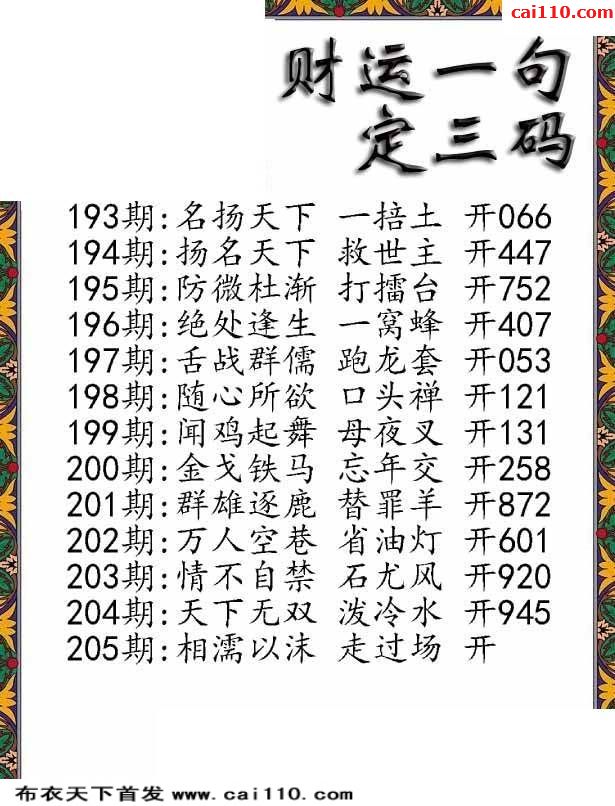 cai110.com
财运一句
定三码
193期:名扬天下 一掊土 开066
194期:扬名天下 救世主 开447
195期:防微杜渐 打擂台 开752
196期:绝处逢生 一窝蜂 开407
197期:舌战群儒 跑龙套 开053
198期:随心所欲 口头禅 开121
199期:闻鸡起舞 母夜叉 开131
200期:金戈铁马 忘年交 开258
201期:群雄逐鹿 替罪羊 开872
202期:万人空巷 省油灯 开601
203期:情不自禁 石尤风 开920
204期:天下无双 泼冷水 开945
205期:相濡以沫 走过场 开
布衣天下首发 www.cai110.com